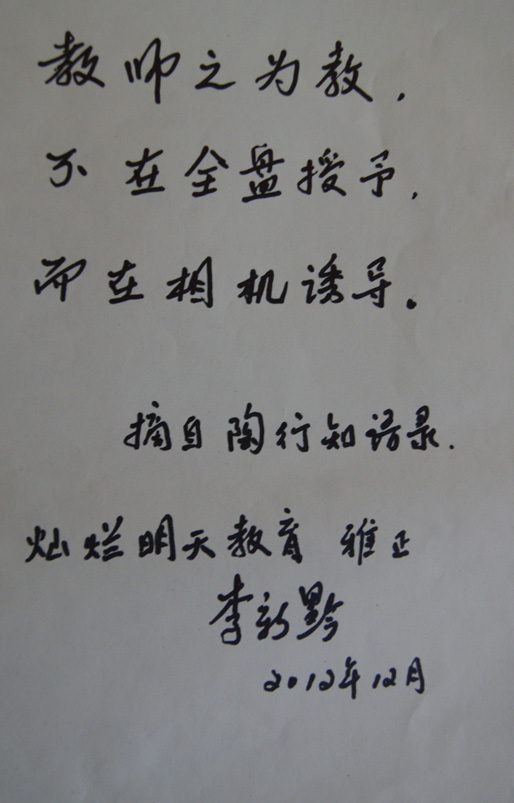 教师之为教，
不在全盘授予，
而在相机诱导。
摘自陶行知语录.
灿烂明天教育 雅正
李新黔
2012年12月